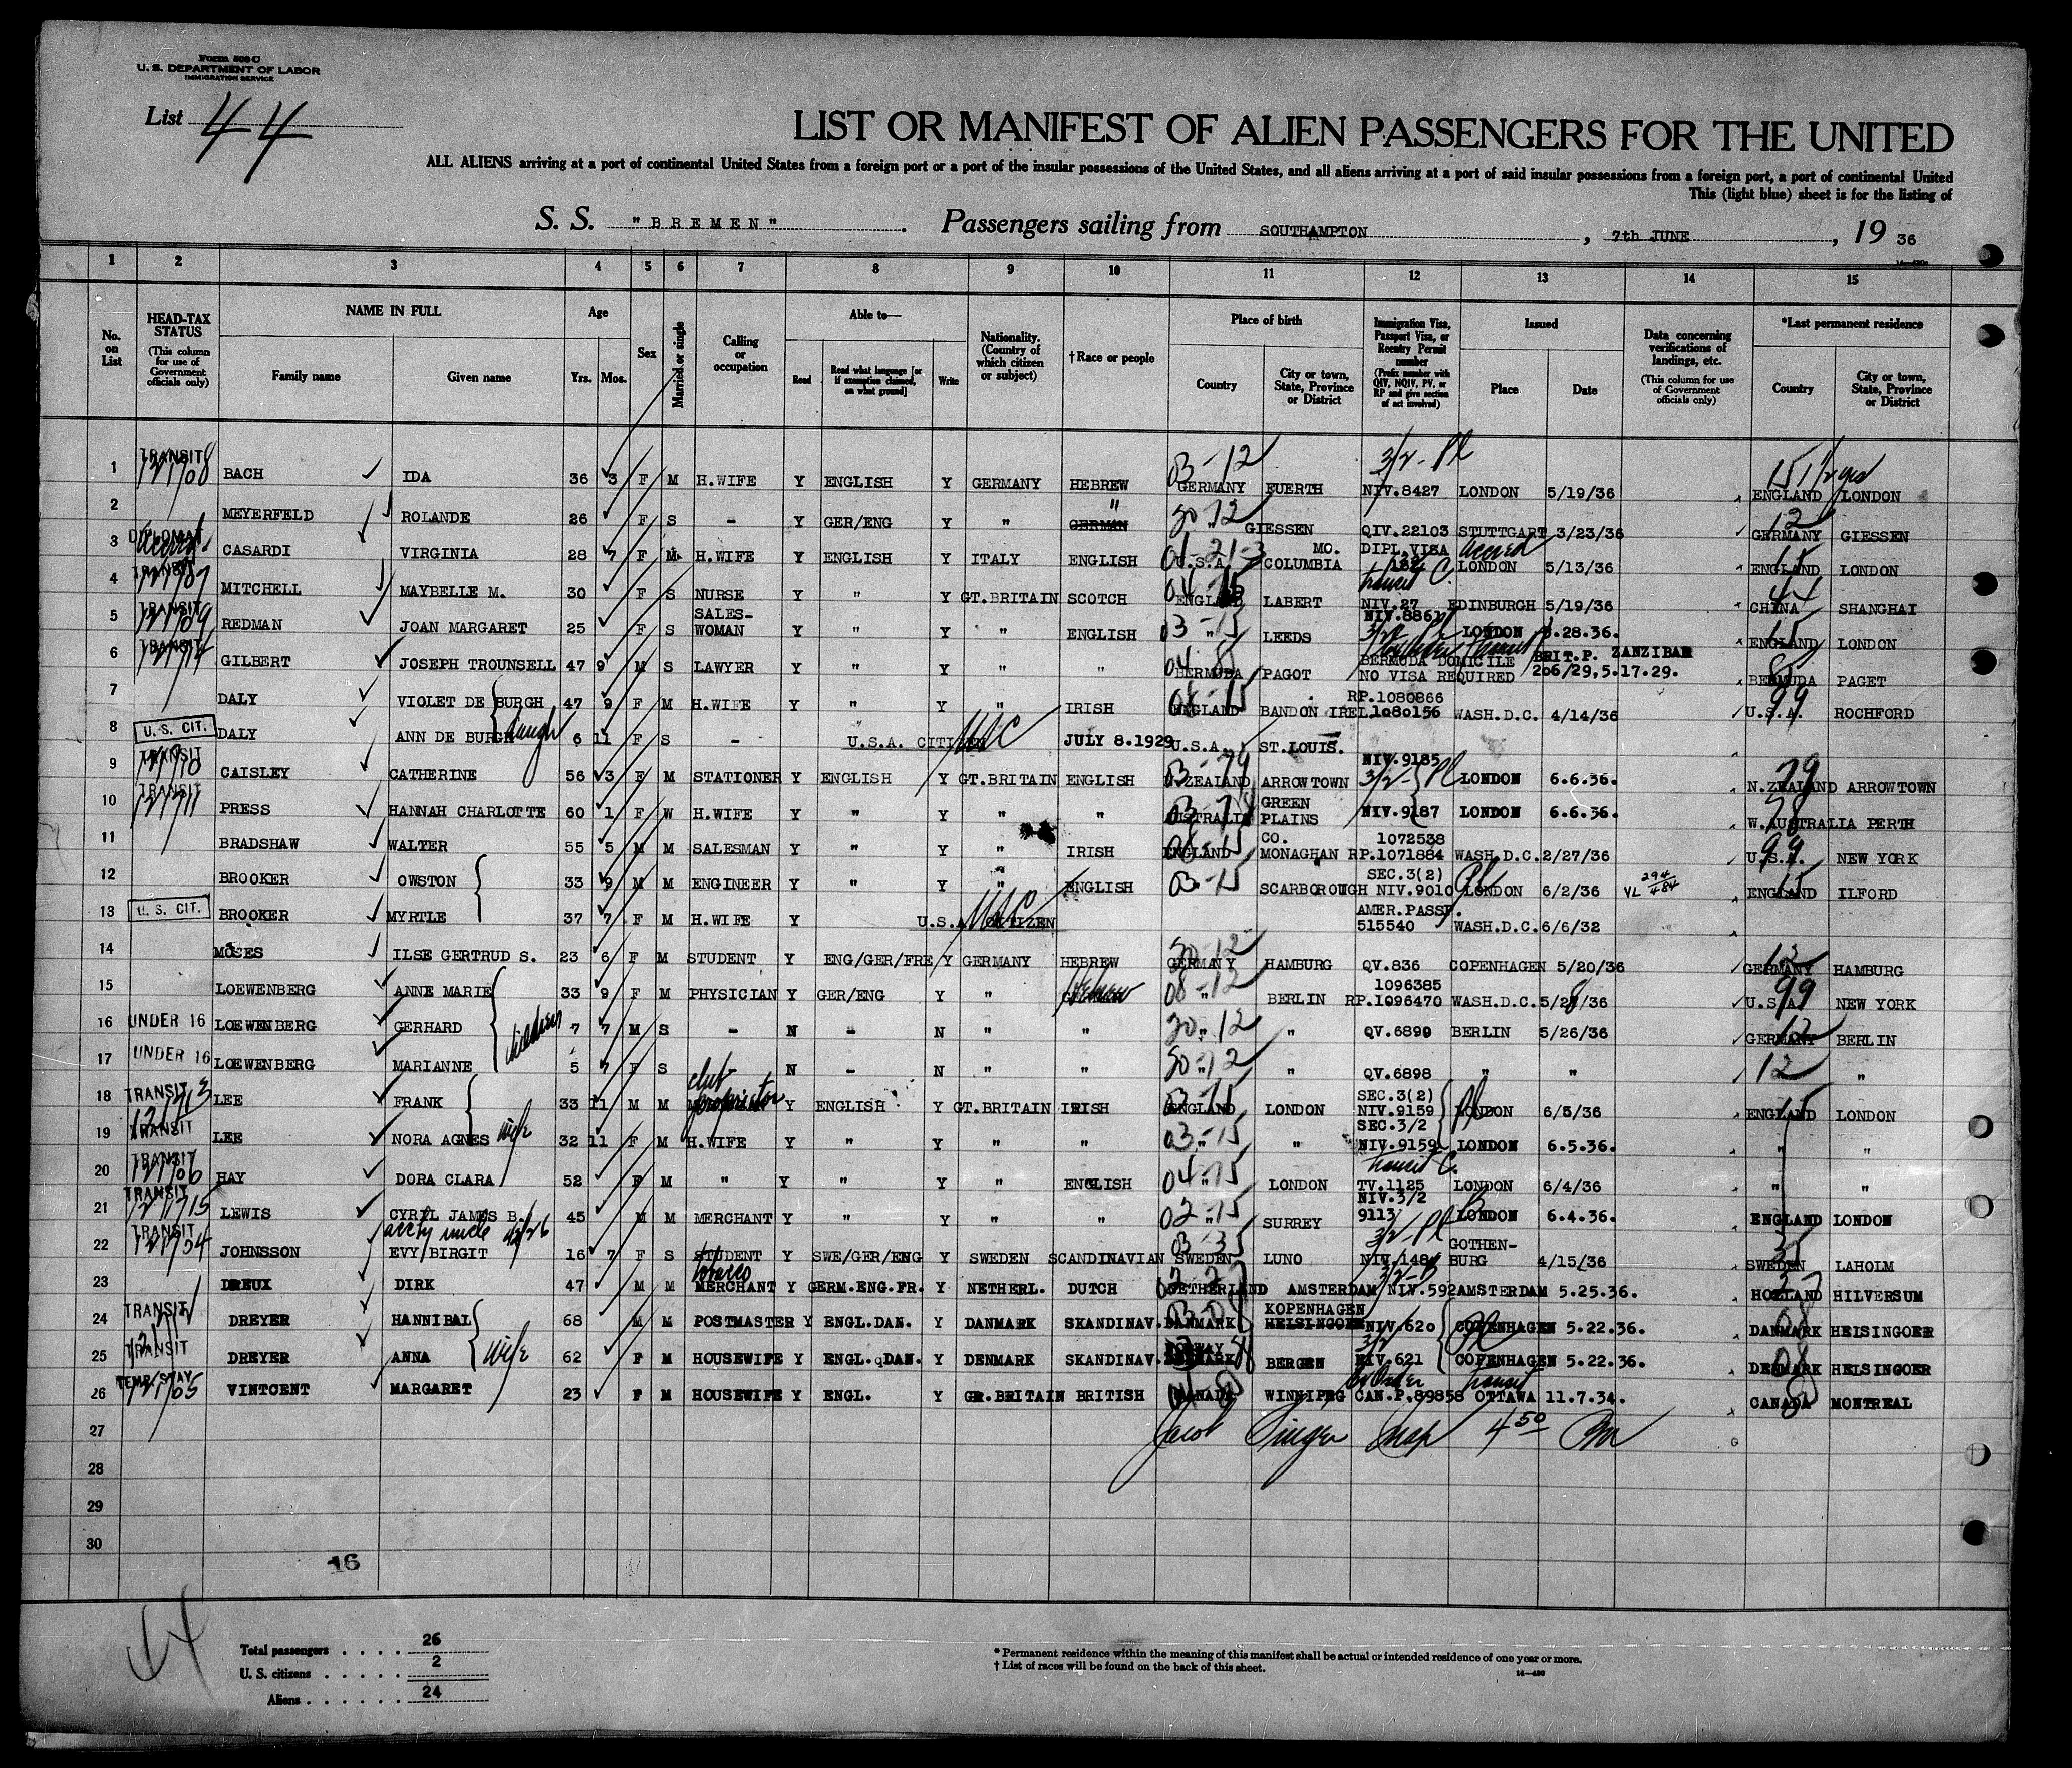 Form 500 C
U. S. DEPARTMENT OF LABOR
IMMIGRATION SERVICE
List 44
LIST OR MANIFEST OF ALIEN PASSENGERS FOR THE UNITED
ALL ALIENS arriving at a port of continental United States from a foreign port or a port of the insular possessions of the United States, and all aliens arriving at a port of said insular possessions from a foreign port, a port of continental United
This (light blue) sheet is for the listing of
S. S. "BREMEN". Passengers sailing from SOUTHAMPTON, 7th JUNE, 19 36
1 2 3 4 5 6 7 8 9 10 11 12 13 14 15
No. on List
HEAD-TAX STATUS (This column for use of Government officials only)
NAME IN FULL
Family name Given name
Age
Yrs. Mos.
Sex
Married or single
Calling or occupation
Able to—
Read Read what language [or if exemption claimed, on what ground] Write
Nationality. (Country of which citizen or subject)
† Race or people
Place of birth
Country City or town, State, Province or District
Immigration Visa, Passport Visa, or Reentry Permit number (Prefix number with QIV, NQIV, PV, or RP and give section of act involved)
Issued
Place Date
Data concerning verifications of landings, etc. (This column for use of Government officials only)
*Last permanent residence
Country City or town, State, Province or District
1 TRANSIT BACH IDA 36 3 F M H.WIFE Y ENGLISH Y GERMANY HEBREW 03-12 GERMANY FUERTH 3/2-Pl NIV.8427 LONDON 5/19/36 15 1 1/2 yrs ENGLAND LONDON
2 MEYERFELD ROLANDE 26 F S - Y GER/ENG Y " " GERMAN " GIESSEN QIV.22103 STUTTGART 3/23/36 12 GERMANY GIESSEN
3 DIPLOMAT CASARDI VIRGINIA 28 7 F M H.WIFE Y ENGLISH Y ITALY ENGLISH U.S.A. MO. COLUMBIA DIPL.VISA LONDON 5/13/36 15 ENGLAND LONDON
4 TRANSIT MITCHELL MAYBELLE M. 30 F S NURSE Y " Y GT.BRITAIN SCOTCH 04-15 ENGLAND LABERT transit C. NIV.27 EDINBURGH 5/19/36 44 CHINA SHANGHAI
5 TRANSIT REDMAN JOAN MARGARET 25 F S SALES-WOMAN Y " Y " ENGLISH 03-15 " LEEDS NIV.8861 3/2 Pl LONDON 5.28.36. 15 ENGLAND LONDON
6 TRANSIT GILBERT JOSEPH TROUNSELL 47 9 M S LAWYER Y " Y " " BERMUDA PAGOT BERMUDA DOMICILE NO VISA REQUIRED BRIT.P. ZANZIBAR 206/29,5.17.29. BERMUDA PAGET
7 DALY VIOLET DE BURGH 47 9 F M H.WIFE Y " Y " IRISH 08-15 ENGLAND BANDON IREL RP.1080866 1080156 WASH.D.C. 4/14/36 99 U.S.A. ROCHFORD
8 U.S. CIT. DALY ANN DE BURGH daugh 6 11 F S - U.S.A. CITIZEN USC JULY 8.1929 U.S.A. ST.LOUIS.
9 TRANSIT CAISLEY CATHERINE 56 3 F M STATIONER Y ENGLISH Y GT.BRITAIN ENGLISH 03-79 N.ZEALAND ARROWTOWN NIV.9185 3/2- Pl LONDON 6.6.36. 79 N.ZEALAND ARROWTOWN
10 TRANSIT PRESS HANNAH CHARLOTTE 60 1 F W H.WIFE Y " Y " " 03-78 AUSTRALIA GREEN PLAINS NIV.9187 LONDON 6.6.36. 78 W.AUSTRALIA PERTH
11 BRADSHAW WALTER 55 5 M M SALESMAN Y " Y " IRISH ENGLAND CO. MONAGHAN 1072538 RP.1071884 WASH.D.C. 2/27/36 99 U.S.A. NEW YORK
12 BROOKER OWSTON 33 9 M M ENGINEER Y " Y " ENGLISH 03-15 SCARBOROUGH SEC.3(2) NIV.9010 Pl LONDON 6/2/36 VL 294/484 15 ENGLAND ILFORD
13 U.S. CIT. BROOKER MYRTLE 37 7 F M H.WIFE Y U.S.A. CITIZEN USC AMER.PASSP. 515540 WASH.D.C. 6/6/32
14 MOSES ILSE GERTRUD S. 23 6 F M STUDENT Y ENG/GER/FRE Y GERMANY HEBREW GERMANY HAMBURG QV.836 COPENHAGEN 5/20/36 12 GERMANY HAMBURG
15 LOEWENBERG ANNE MARIE 33 9 F M PHYSICIAN Y GER/ENG Y " Hebrew 08-12 " BERLIN 1096385 RP.1096470 WASH.D.C. 5/28/36 99 U.S.A. NEW YORK
16 UNDER 16 LOEWENBERG GERHARD children 7 7 M S - N - N " " " " QV.6899 BERLIN 5/26/36 12 GERMANY BERLIN
17 UNDER 16 LOEWENBERG MARIANNE 5 7 F S N - N " " " " QV.6898 " " 12 "
18 TRANSIT LEE FRANK 33 11 M M club-proprietor Y ENGLISH Y GT.BRITAIN IRISH 03-15 ENGLAND LONDON SEC.3(2) NIV.9159 Pl LONDON 6/5/36 15 ENGLAND LONDON
19 TRANSIT LEE NORA AGNES wife 32 11 F M H.WIFE Y " Y " " 03-15 " " SEC.3/2 NIV.9159 LONDON 6.5.36. " "
20 TRANSIT HAY DORA CLARA 52 F M " Y " Y " ENGLISH 04-15 " LONDON transit C. TV.1125 LONDON 6/4/36 " "
21 TRANSIT LEWIS CYRIL JAMES B. 45 M M MERCHANT Y " Y " " 02-15 " SURREY NIV.3/2 9113 LONDON 6.4.36. ENGLAND LONDON
22 TRANSIT JOHNSSON EVY BIRGIT 16 7 F S STUDENT Y SWE/GER/ENG Y SWEDEN SCANDINAVIAN 03-35 SWEDEN LUNO 3/2-Pl NIV.1484 GOTHEN-BURG 4/15/36 35 SWEDEN LAHOLM
23 DREUX DIRK 47 M M tobacco MERCHANT Y GERM.ENG.FR. Y NETHERL. DUTCH NETHERLAND AMSTERDAM 3/2-B NIV.592 AMSTERDAM 5.25.36. HOLLAND HILVERSUM
24 TRANSIT DREYER HANNIBAL 68 M M POSTMASTER Y ENGL.DAN. Y DANMARK SKANDINAV. DANMARK KOPENHAGEN HELSINGOER NIV.620 COPENHAGEN 5.22.36. 08 DANMARK HELSINGOER
25 TRANSIT DREYER ANNA wife 62 F M HOUSEWIFE Y ENGL. DAN. Y DENMARK SKANDINAV. BERGEN 3/2 NIV.621 COPENHAGEN 5.22.36. 08 DENMARK HELSINGOER
26 TEMP.STAY VINTCENT MARGARET 23 F M HOUSEWIFE Y ENGL. Y GR.BRITAIN BRITISH CANADA WINNIPEG CAN.P.89858 OTTAWA 11.7.34. CANADA MONTREAL
27 Jacob Singer Insp 4 50 Pm
28
29
30
16
44
Total passengers . . . . 26
U. S. citizens . . . . . 2
Aliens . . . . . . 24
* Permanent residence within the meaning of this manifest shall be actual or intended residence of one year or more.
† List of races will be found on the back of this sheet.
14—430